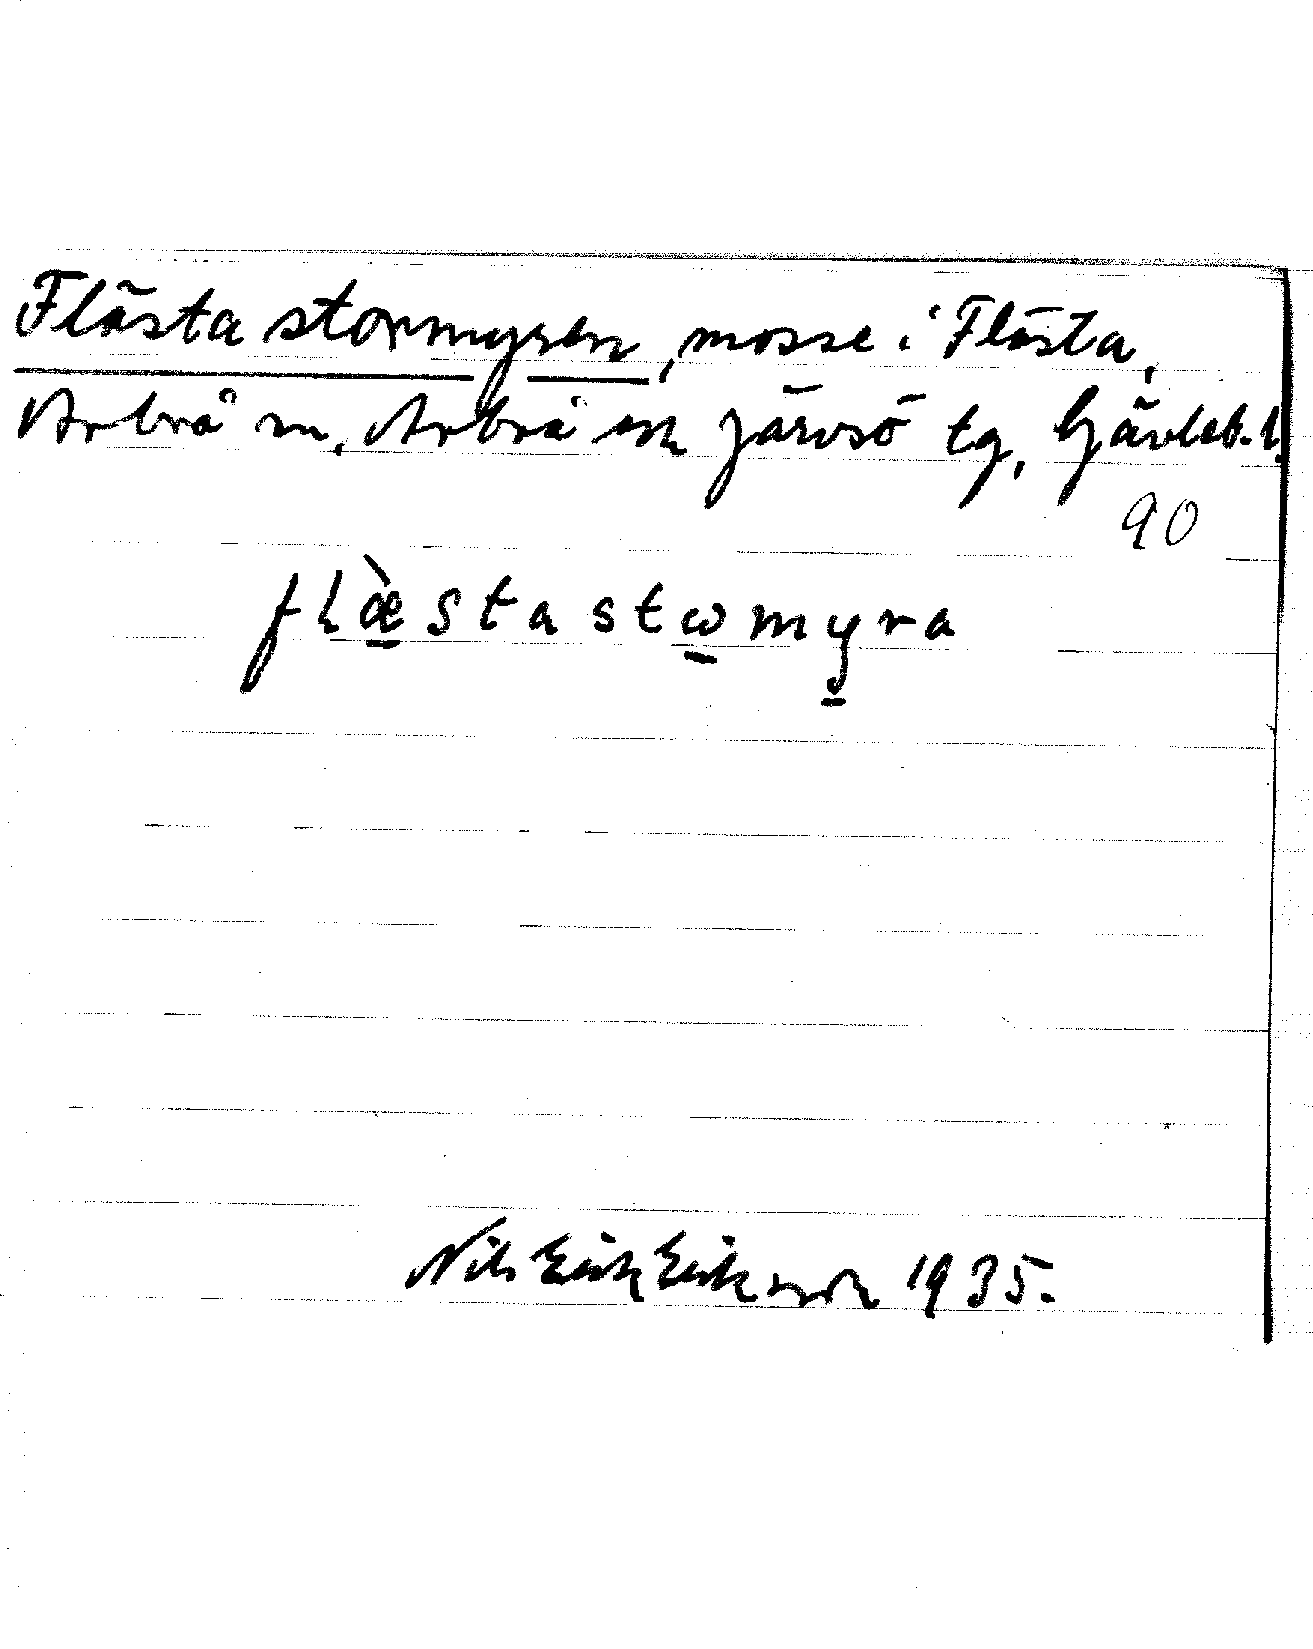 Flästa stormyren, mosse i Flästa,
Arbrå sn, Arbrå och Järvsö tg, Gävleb. l.
90
flæ̀stastωmyra
Nils Erik Eriksson 1935.